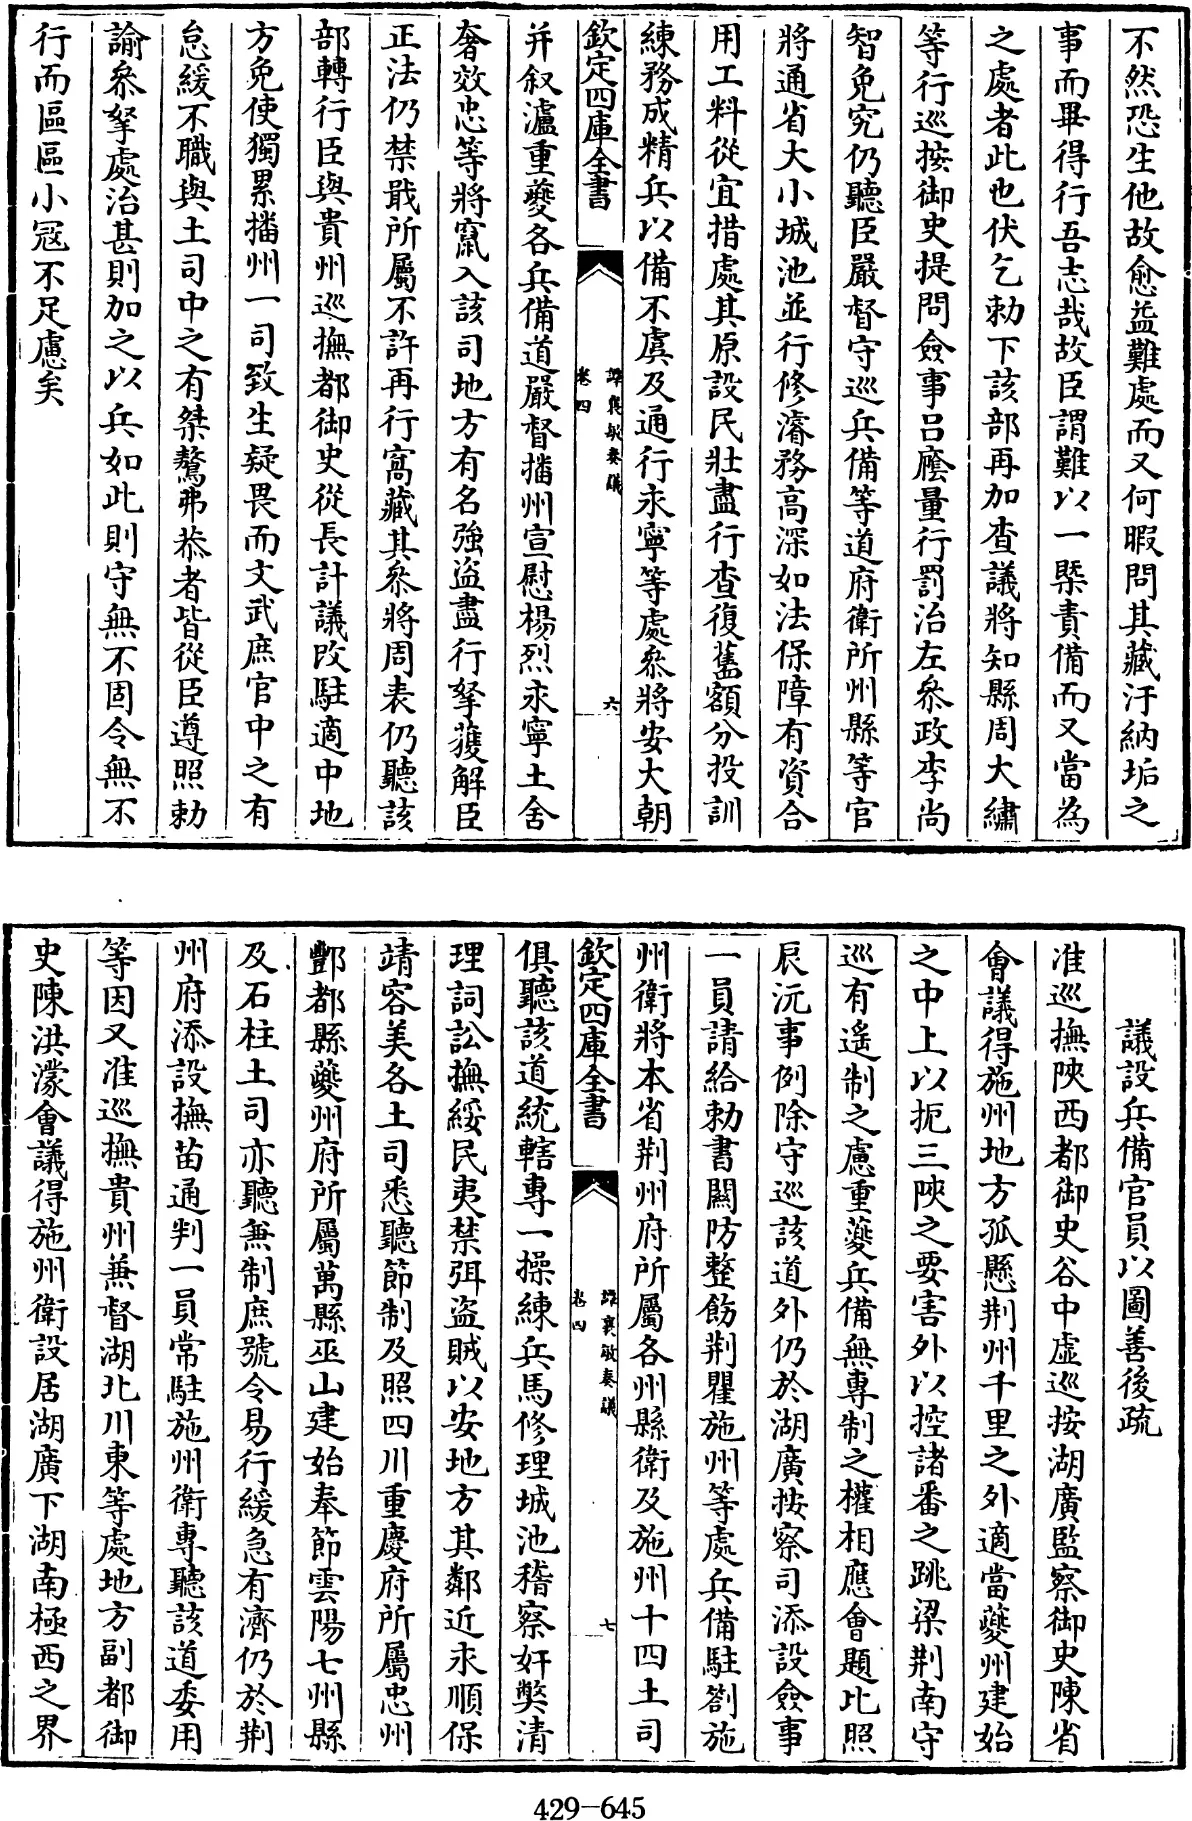 不然恐生他故愈益難處而又何暇問其藏汙納垢之
事而畢得行吾志哉故臣謂難以一槩責備而又當為
之處者此也伏乞勅下該部再加查議將知縣周大繡
等行巡按御史提問僉事呂廕量行罰治左叅政李尚
智免究仍聽臣嚴督守巡兵備等道府衛所州縣等官
將通省大小城池並行修濬務高深如法保障有資合
用工料從宜措處其原設民壯盡行查復舊額分投訓
練務成精兵以備不虞及通行永寧等處叅將安大朝
欽定四庫全書
譚襄敏奏議
卷四
六
并叙瀘重夔各兵備道嚴督播州宣慰楊烈永寧土舍
奢效忠等將竄入該司地方有名強盜盡行拏獲解臣
正法仍禁戢所屬不許再行窩藏其叅將周表仍聽該
部轉行臣與貴州巡撫都御史從長計議改駐適中地
方免使獨累播州一司致生疑畏而文武庶官中之有
怠緩不職與土司中之有桀驁弗恭者皆從臣遵照勅
諭叅拏處治甚則加之以兵如此則守無不固令無不
行而區區小冦不足慮矣
議設兵備官員以圖善後疏
准巡撫陜西都御史谷中虛巡按湖廣監察御史陳省
會議得施州地方孤懸荆州千里之外適當夔州建始
之中上以扼三陜之要害外以控諸番之跳梁荆南守
巡有遙制之慮重夔兵備無專制之權相應會題比照
辰沅事例除守巡該道外仍於湖廣按察司添設僉事
一員請給勅書關防整飭荆瞿施州等處兵備駐劄施
州衛將本省荆州府所屬各州縣衛及施州十四土司
欽定四庫全書
譚襄敏奏議
卷四
七
俱聽該道統轄專一操練兵馬修理城池稽察奸弊清
理詞訟撫綏民夷禁弭盜賊以安地方其鄰近永順保
靖容美各土司悉聽節制及照四川重慶府所屬忠州
酆都縣夔州府所屬萬縣巫山建始奉節雲陽七州縣
及石柱土司亦聽兼制庶號令易行緩急有濟仍於荆
州府添設撫苗通判一員常駐施州衛專聽該道委用
等因又准巡撫貴州兼督湖北川東等處地方副都御
史陳洪濛會議得施州衛設居湖廣下湖南極西之界
429-645